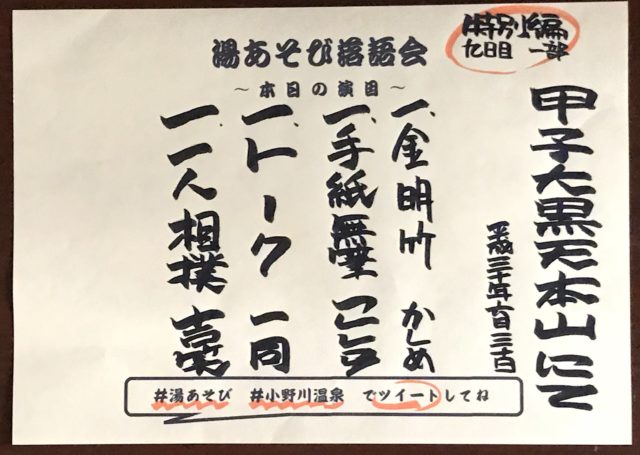 特別編
九日目 一部
湯あそび落語会
~本日の演目~
甲子大黒天本山にて
平成三十年
一、金明竹 かしめ
一、手紙無筆 こしら
一、トーク 一同
一、一人相撲 吉笑
#湯あそび #小野川温泉 でツイートしてね